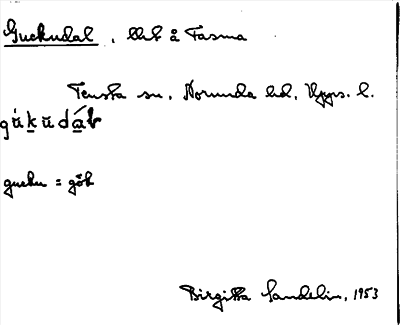 Guckudal, litet å Tasma
Tensta sn, Norunda hd, Upps. l.
gúkŭdáɫ
gucku = gök
Birgitta Sandelin, 1953